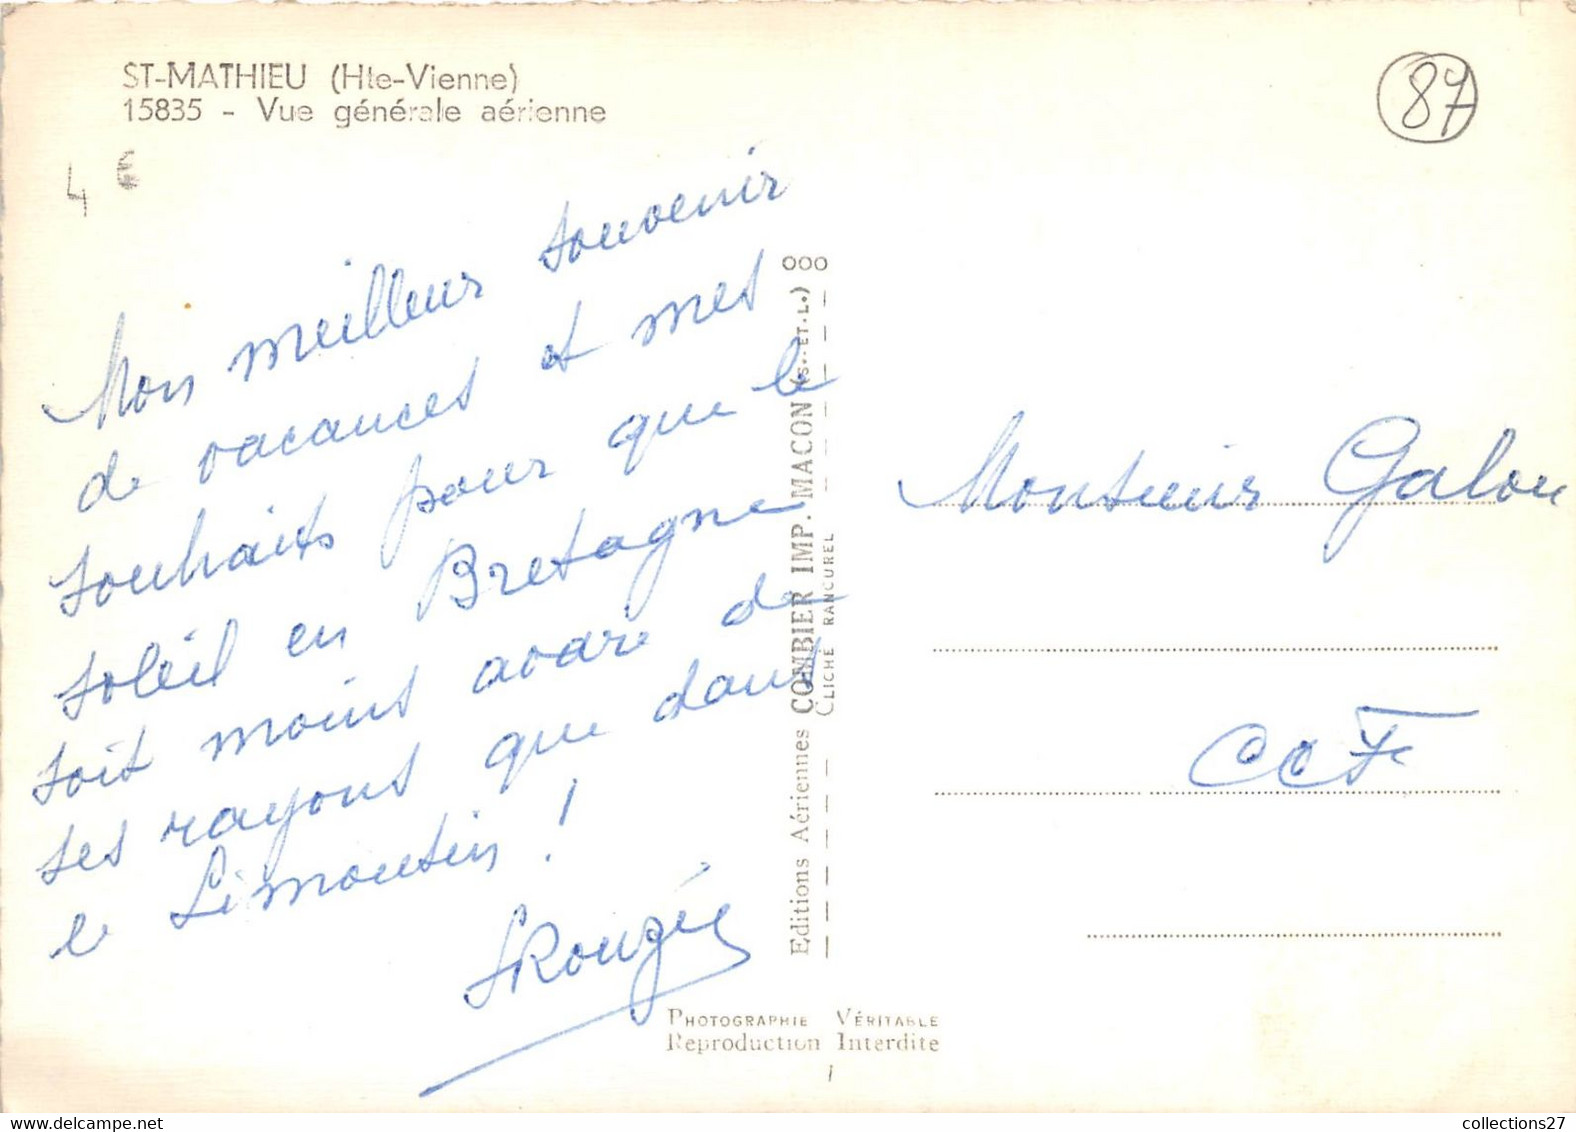 ST-MATHIEU (Hte-Vienne)
15835 - Vue générale aérienne
87
4 €
Mon meilleur souvenir
de vacances et mes
souhaits pour que le
soleil en Bretagne
soit moins avare de
ses rayons que dans
le Limousin !
Rouzée
Editions Aériennes COMBIER IMP. MACON (S.-ET-L.) 000
CLICHÉ RANCUREL
Monsieur Galou
CCF
PHOTOGRAPHIE VÉRITABLE
Reproduction Interdite
collections27